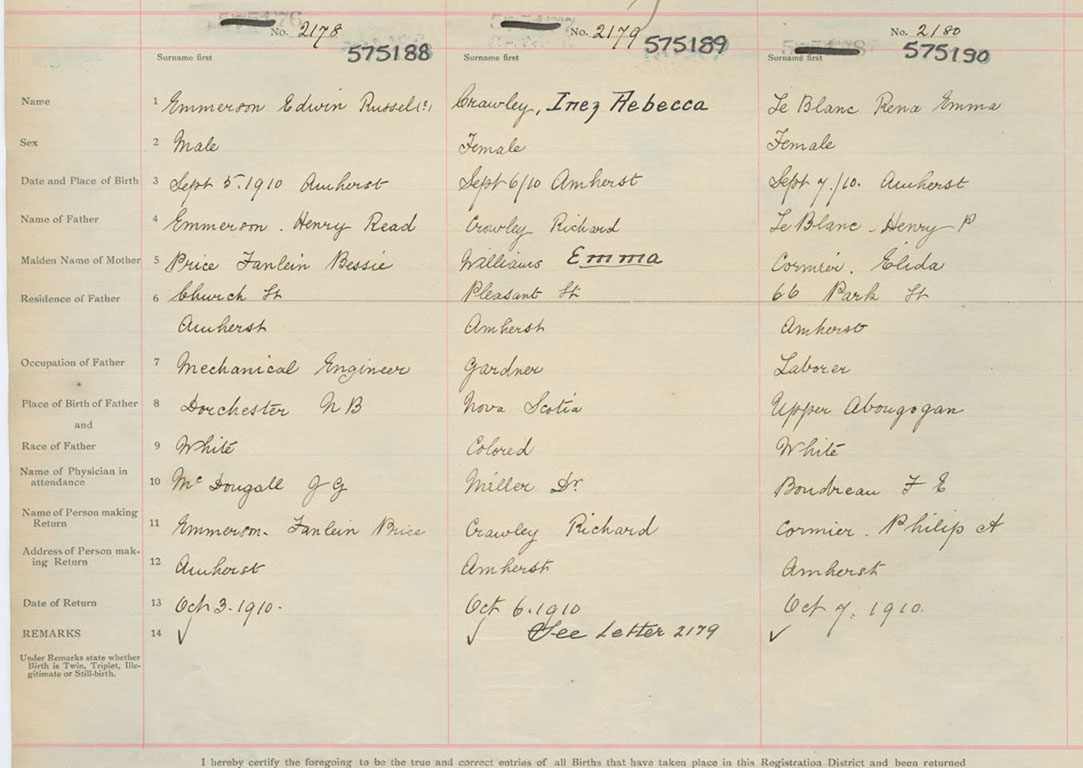 No. 2178 No. 2179 No. 2180
575188 575189 575190
Surname first Surname first Surname first
Name 1 Emmerson Edwin Russell Crawley, Inez Rebecca Le Blanc Rena Emma
Sex 2 Male Female Female
Date and Place of Birth 3 Sept 5. 1910 Amherst Sept 6/10 Amherst Sept 7./10. Amherst
Name of Father 4 Emmerson. Henry Read Crowley Richard Le Blanc - Henry P
Maiden Name of Mother 5 Price Fanlein Bessie Williams Emma Cormier. Elida
Residence of Father 6 Church St Pleasant St 66 Park St
Amherst Amherst Amherst
Occupation of Father 7 Mechanical Engineer Gardner Laborer
Place of Birth of Father 8 Dorchester N B Nova Scotia Upper Abougogan
and
Race of Father 9 White Colored White
Name of Physician in
attendance 10 Mc Dougall J G Miller Dr. Boudreau F E
Name of Person making
Return 11 Emmerson. Fanlein Price Crawley Richard Cormier. Philip A
Address of Person mak-
ing Return 12 Amherst Amherst Amherst
Date of Return 13 Oct 3. 1910. Oct 6. 1910 Oct 7. 1910.
REMARKS 14 ✓ ✓ See Letter 2179 ✓
Under Remarks state whether
Birth is Twin, Triplet, Ille-
gitimate or Still-birth.
I hereby certify the foregoing to be the true and correct entries of all Births that have taken place in this Registration District and been returned